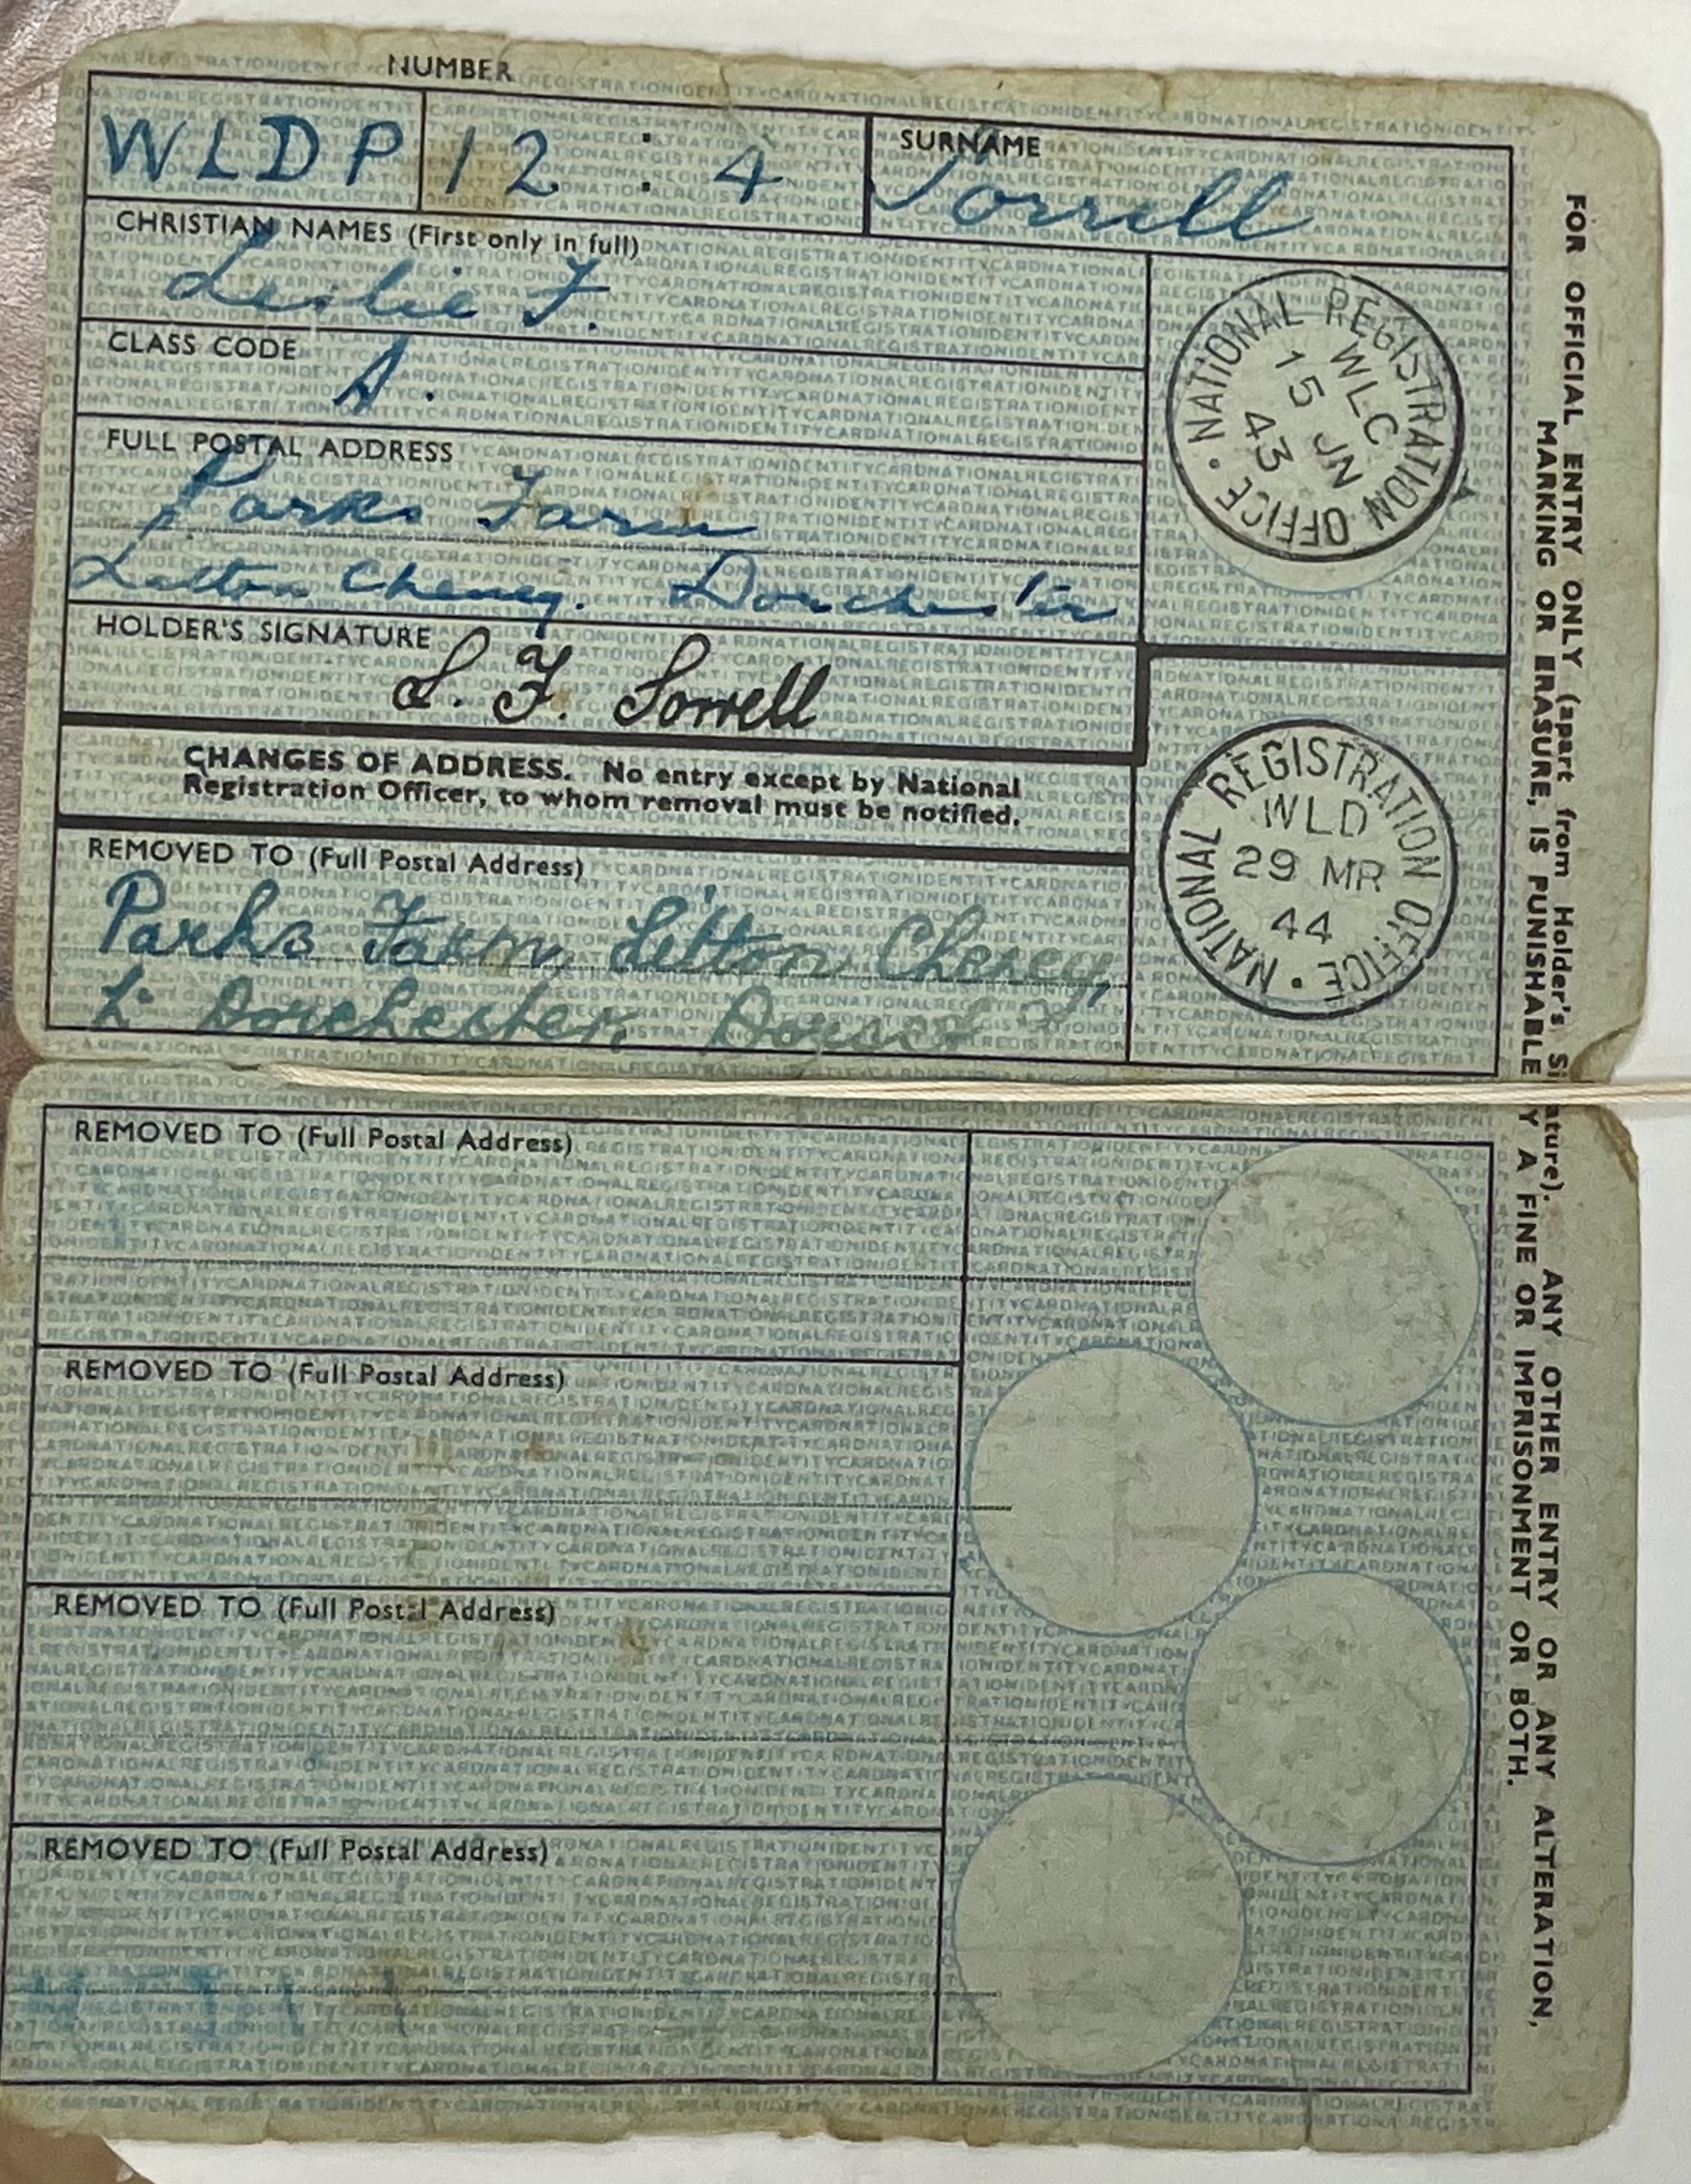 NUMBER
WLDP 12 : 4
SURNAME
Sorrell
CHRISTIAN NAMES (First only in full)
Leslie F.
CLASS CODE
A.
FULL POSTAL ADDRESS
Parks Farm
Litton Cheney. Dorchester
HOLDER'S SIGNATURE
L. F. Sorrell
NATIONAL REGISTRATION OFFICE
WLC
15 JN
43
CHANGES OF ADDRESS. No entry except by National
Registration Officer, to whom removal must be notified.
REMOVED TO (Full Postal Address)
Parks Farm, Litton Cheney,
Dorchester. Dorset
NATIONAL REGISTRATION OFFICE
WLD
29 MR
44
REMOVED TO (Full Postal Address)
REMOVED TO (Full Postal Address)
REMOVED TO (Full Postal Address)
REMOVED TO (Full Postal Address)
FOR OFFICIAL ENTRY ONLY (apart from Holder's Si ature). ANY OTHER ENTRY OR ANY ALTERATION,
MARKING OR ERASURE, IS PUNISHABLE Y A FINE OR IMPRISONMENT OR BOTH.